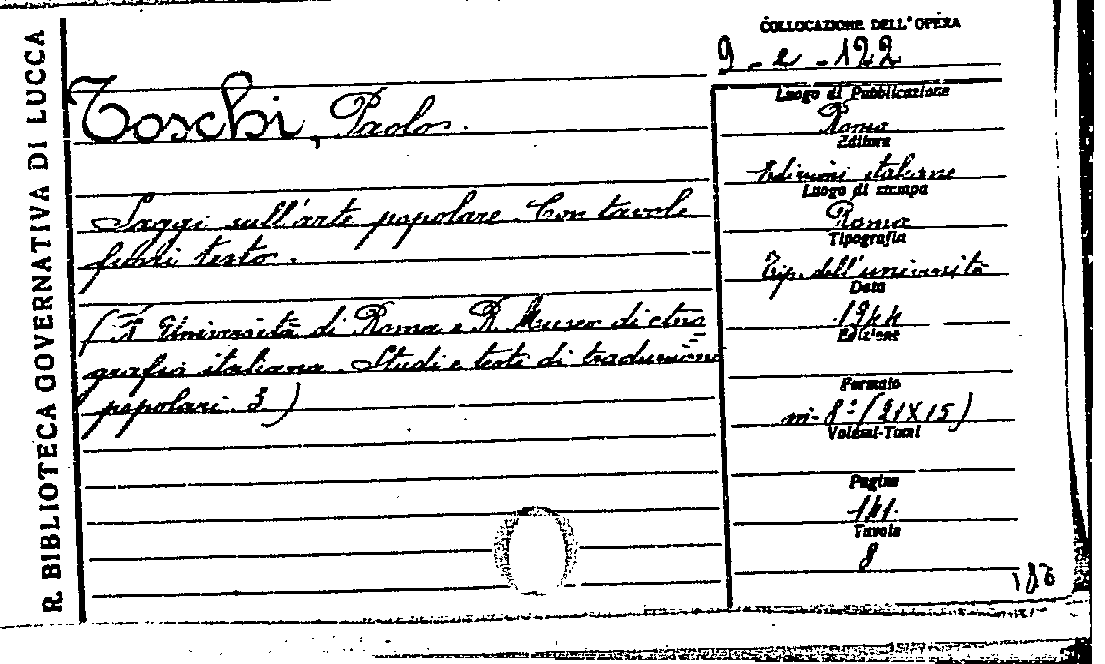 R. BIBLIOTECA GOVERNATIVA DI LUCCA
COLLOCAZIONE DELL'OPERA
9 - e - 122
Toschi, Paolo.
Saggi sull'arte popolare. Con tavole
fuori testo.
(R. Università di Roma e R. Museo di etno
grafia italiana. Studi e testi di tradizioni
popolari. 3)
Luogo di Pubblicazione
Roma
Editore
Edizioni italiane
Luogo di stampa
Roma
Tipografia
Tip. dell'università
Data
1944
Edizione
Formato
in-8° (21X15)
Volumi-Tomi
Pagine
141.
Tavole
8